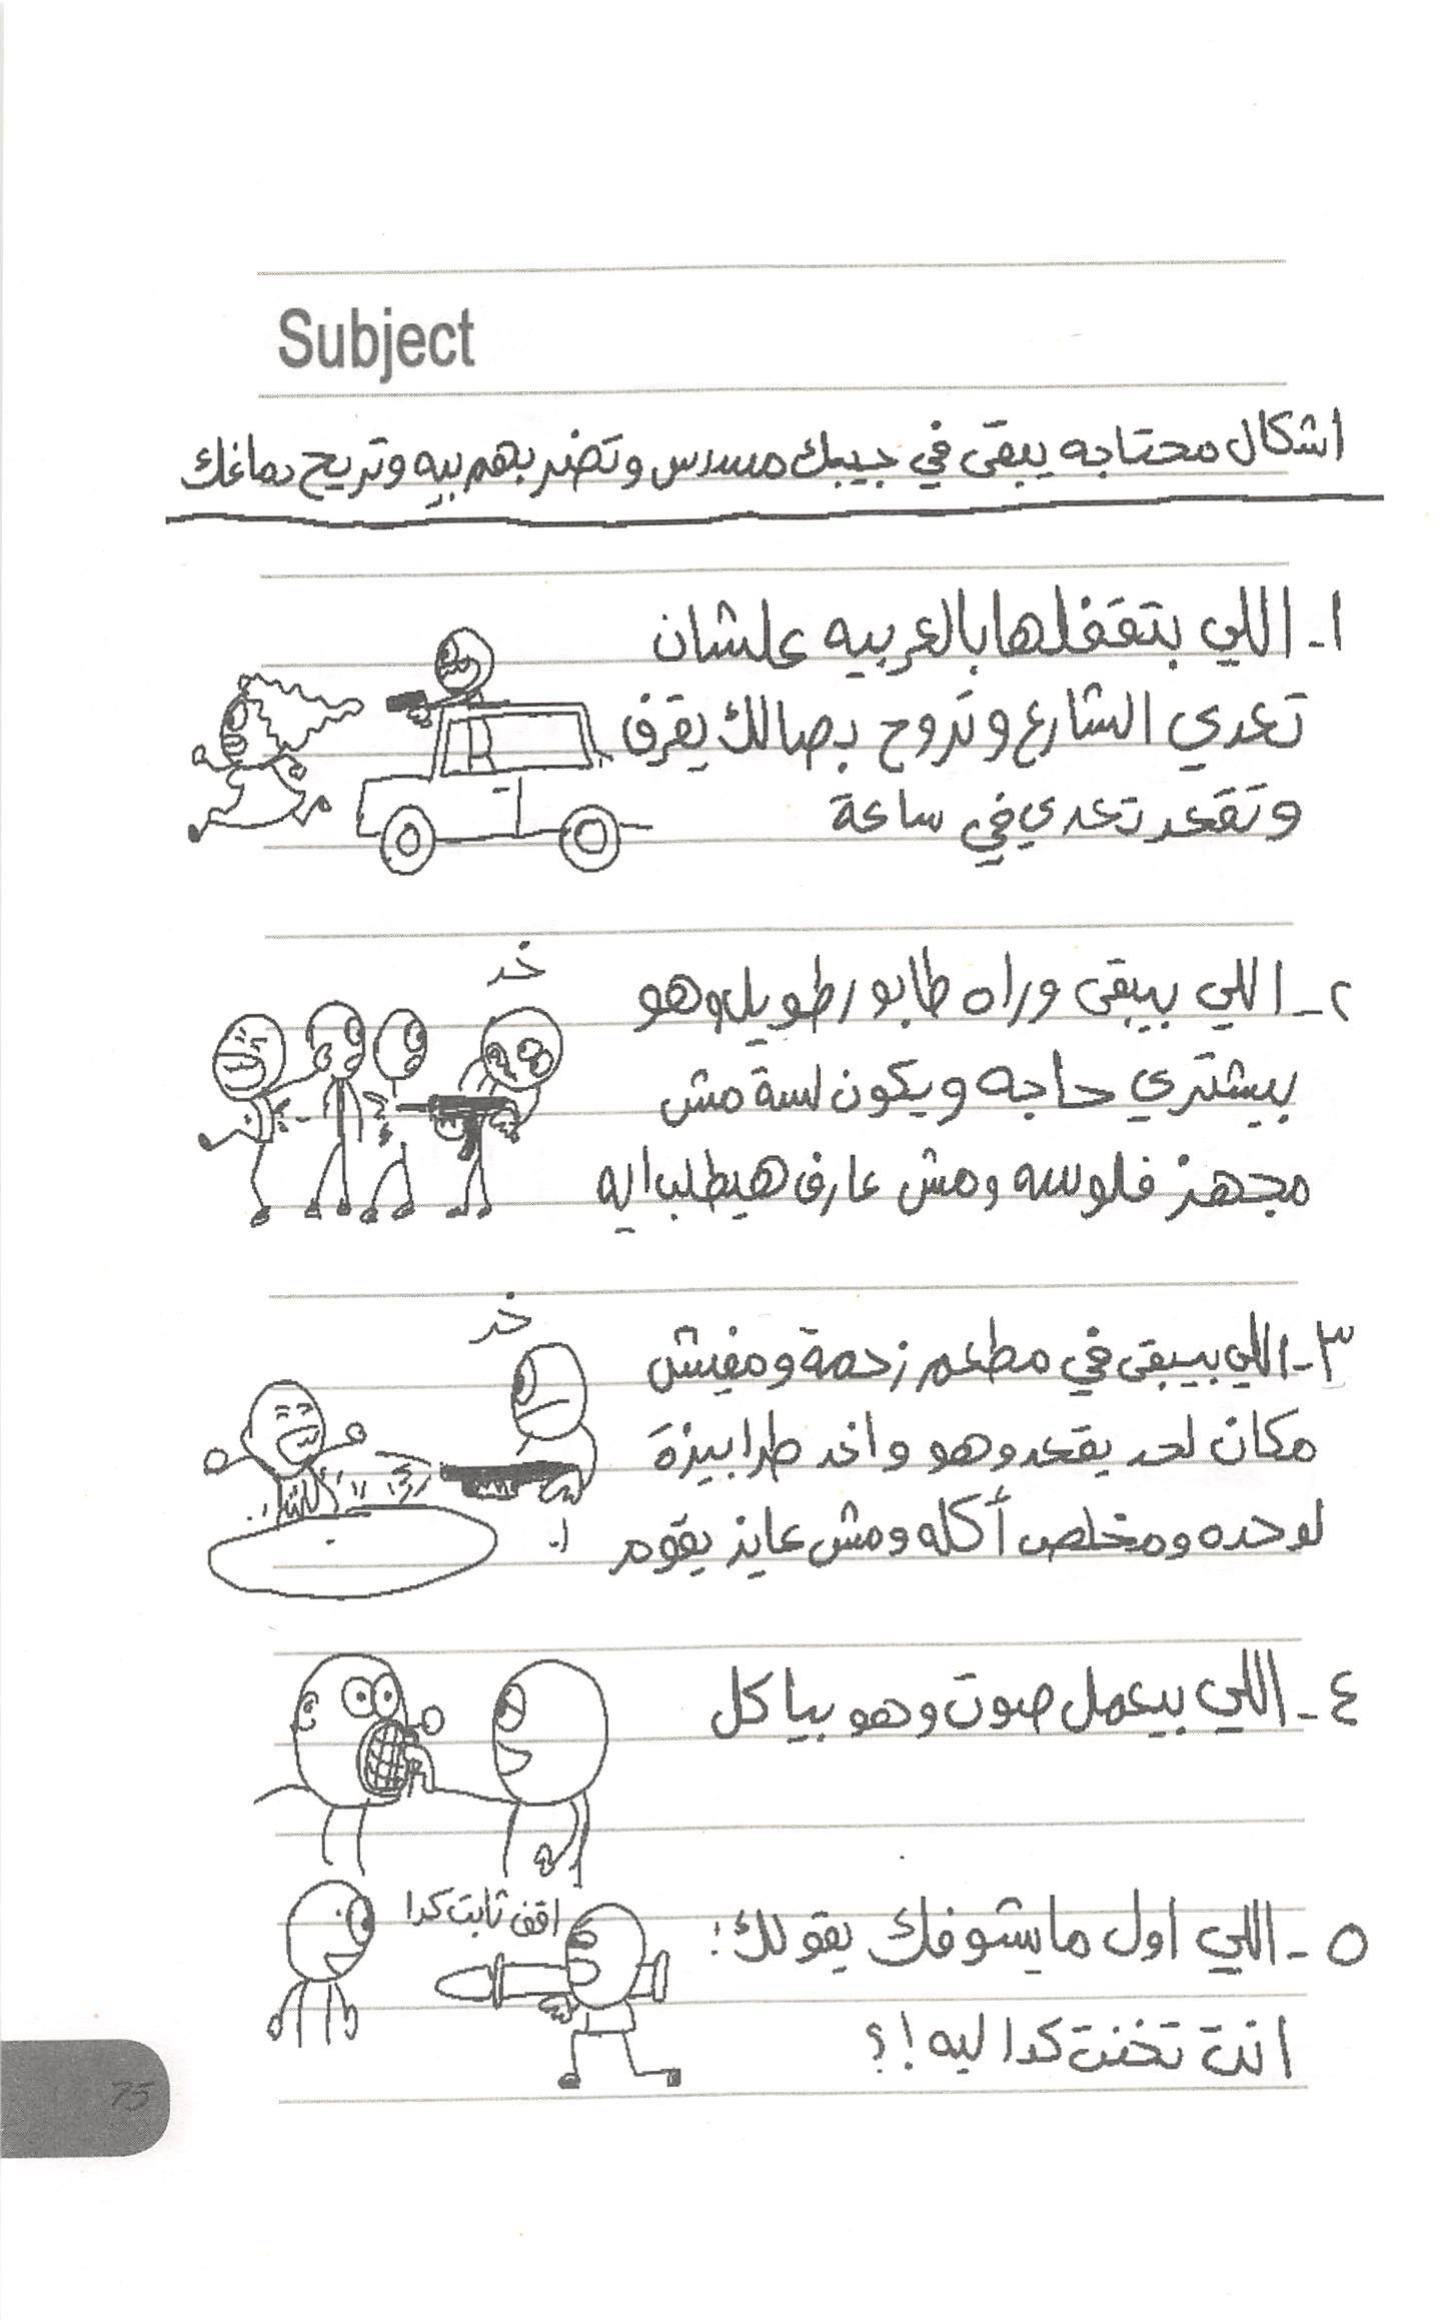 Subject
اشكال محتاجه يبقى في جيبك مسدس وتضربهم بيه وتريح دماغك
١- اللي بتقفلها بالعربيه علشان
تعدي الشارع وتروح بصالك بقرف
وتقعد تعدي في ساعة
خد
٢- اللي بيبقى وراه طابور طويل وهو
بيشتري حاجه ويكون لسة مش
مجهز فلوسه ومش عارف هيطلب ايه
خد
٣- اللي بيبقى في مطعم زحمة ومفيش
مكان لحد يقعد وهو واخد طرابيزة
لوحده ومخلص أكله ومش عايز يقوم
٤- اللي بيعمل صوت وهو بياكل
اقف ثابت كدا
٥- اللي اول مايشوفك يقولك:
انت تخنت كدا ليه!؟
75